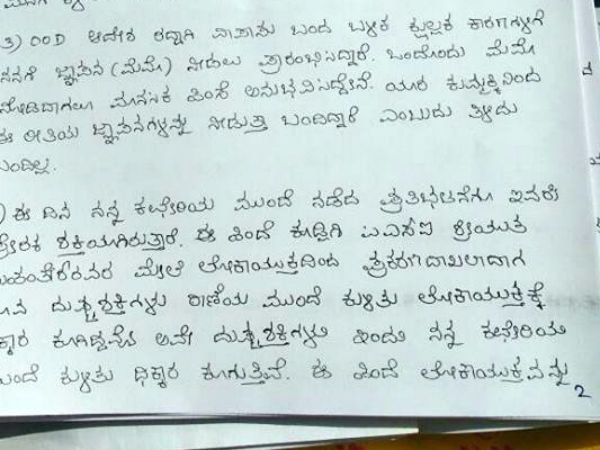 ೨) OOD ಆದೇಶ ರದ್ದಾಗಿ ವಾಪಾಸು ಬಂದ ಬಳಿಕ ಕ್ಷುಲ್ಲಕ ಕಾರಣಗಳಿಗೆ
ನನಗೆ ಜ್ಞಾಪನ (ಮೆಮೋ) ನೀಡಲು ಪ್ರಾರಂಭಿಸಿದ್ದಾರೆ. ಒಂದೊಂದು ಮೆಮೋ
ನೋಡಿದಾಗಲೂ ಮಾನಸಿಕ ಹಿಂಸೆ ಅನುಭವಿಸಿದ್ದೇನೆ. ಯಾರ ಕುಮ್ಮಕ್ಕಿನಿಂದ
ಈ ರೀತಿಯ ಜ್ಞಾಪನಗಳನ್ನು ನೀಡುತ್ತಾ ಬಂದಿದ್ದಾರೆ ಎಂಬುದು ತಿಳಿದು
ಬಂದಿಲ್ಲ.
) ಈ ದಿನ ನನ್ನ ಕಛೇರಿಯ ಮುಂದೆ ನಡೆದ ಪ್ರತಿಭಟನೆಗೂ ಇವರೇ
ಪ್ರೇರಕ ಶಕ್ತಿಯಾಗಿರುತ್ತಾರೆ. ಈ ಹಿಂದೆ ಕೂಡ್ಲಿಗಿ ಎಎಸ್ಐ ಶ್ರೀಯುತ
ಮೇಲೆ ಲೋಕಾಯುಕ್ತದಿಂದ ಪ್ರಕರಣ ದಾಖಲಾದಾಗ
ದುಷ್ಟಶಕ್ತಿಗಳು ಠಾಣೆಯ ಮುಂದೆ ಕುಳಿತು ಲೋಕಾಯುಕ್ತಕ್ಕೆ
ಅವೇ ದುಷ್ಟಶಕ್ತಿಗಳು ಇಂದು ನನ್ನ ಕಛೇರಿಯ
ಮುಂದೆ ಕುಳಿತು ಧಿಕ್ಕಾರ ಕೂಗುತ್ತಿವೆ. ಈ ಹಿಂದೆ ಲೋಕಾಯುಕ್ತವನ್ನು
2